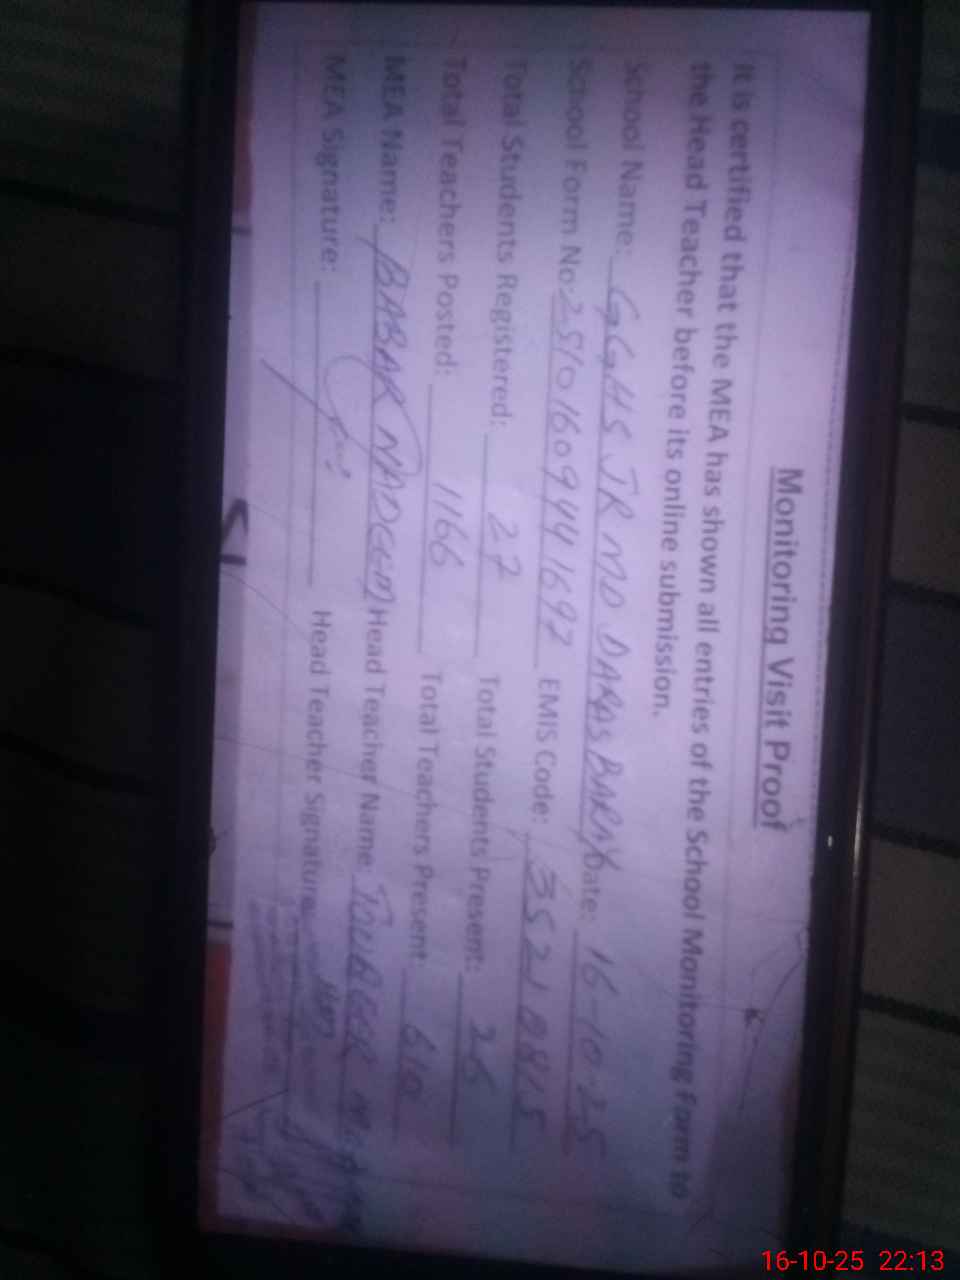 Monitoring Visit Proof
It is certified that the MEA has shown all entries of the School Monitoring Form to
the Head Teacher before its online submission.
School Name: GGHS JR MD DARAS BARA Date: 16-10-25
School Form No: 25101609441697 EMIS Code: 35210815
Total Students Registered: 27 Total Students Present: 26
Total Teachers Posted: 1166 Total Teachers Present: 610
MEA Name: BABAR NADEEM Head Teacher Name:
MEA Signature: Head Teacher Signature
16-10-25 22:13